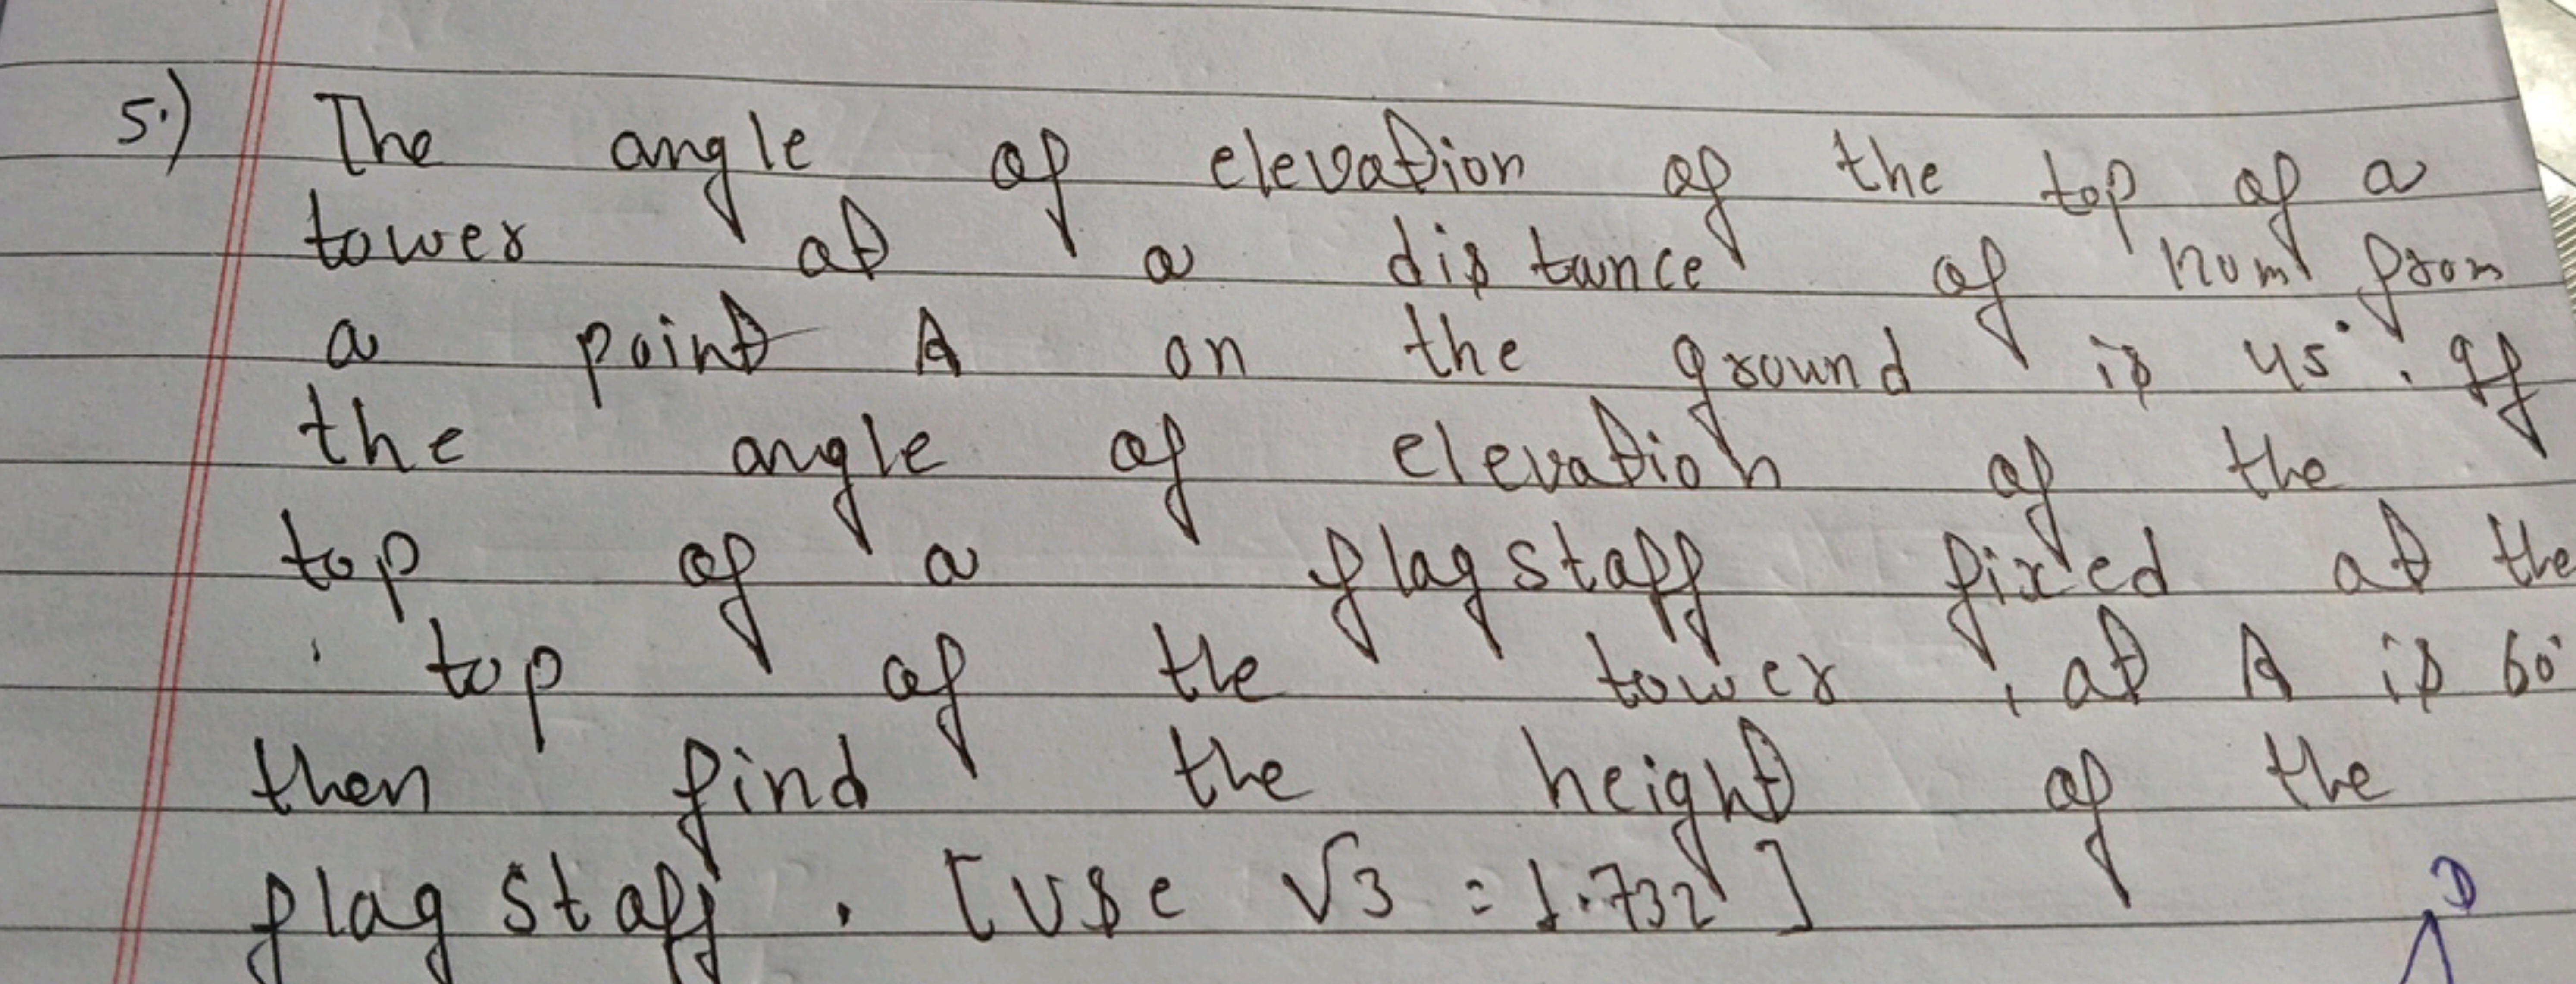 5.) The angle of elevation of the top of a
tower at a distance of 120m from
a point A on the ground is 45°. If
the angle of elevation of the
top of a flagstaff fixed at the
top of the tower, at A is 60°
then find the height of the
flagstaff. [Use √3 = 1.732]
D